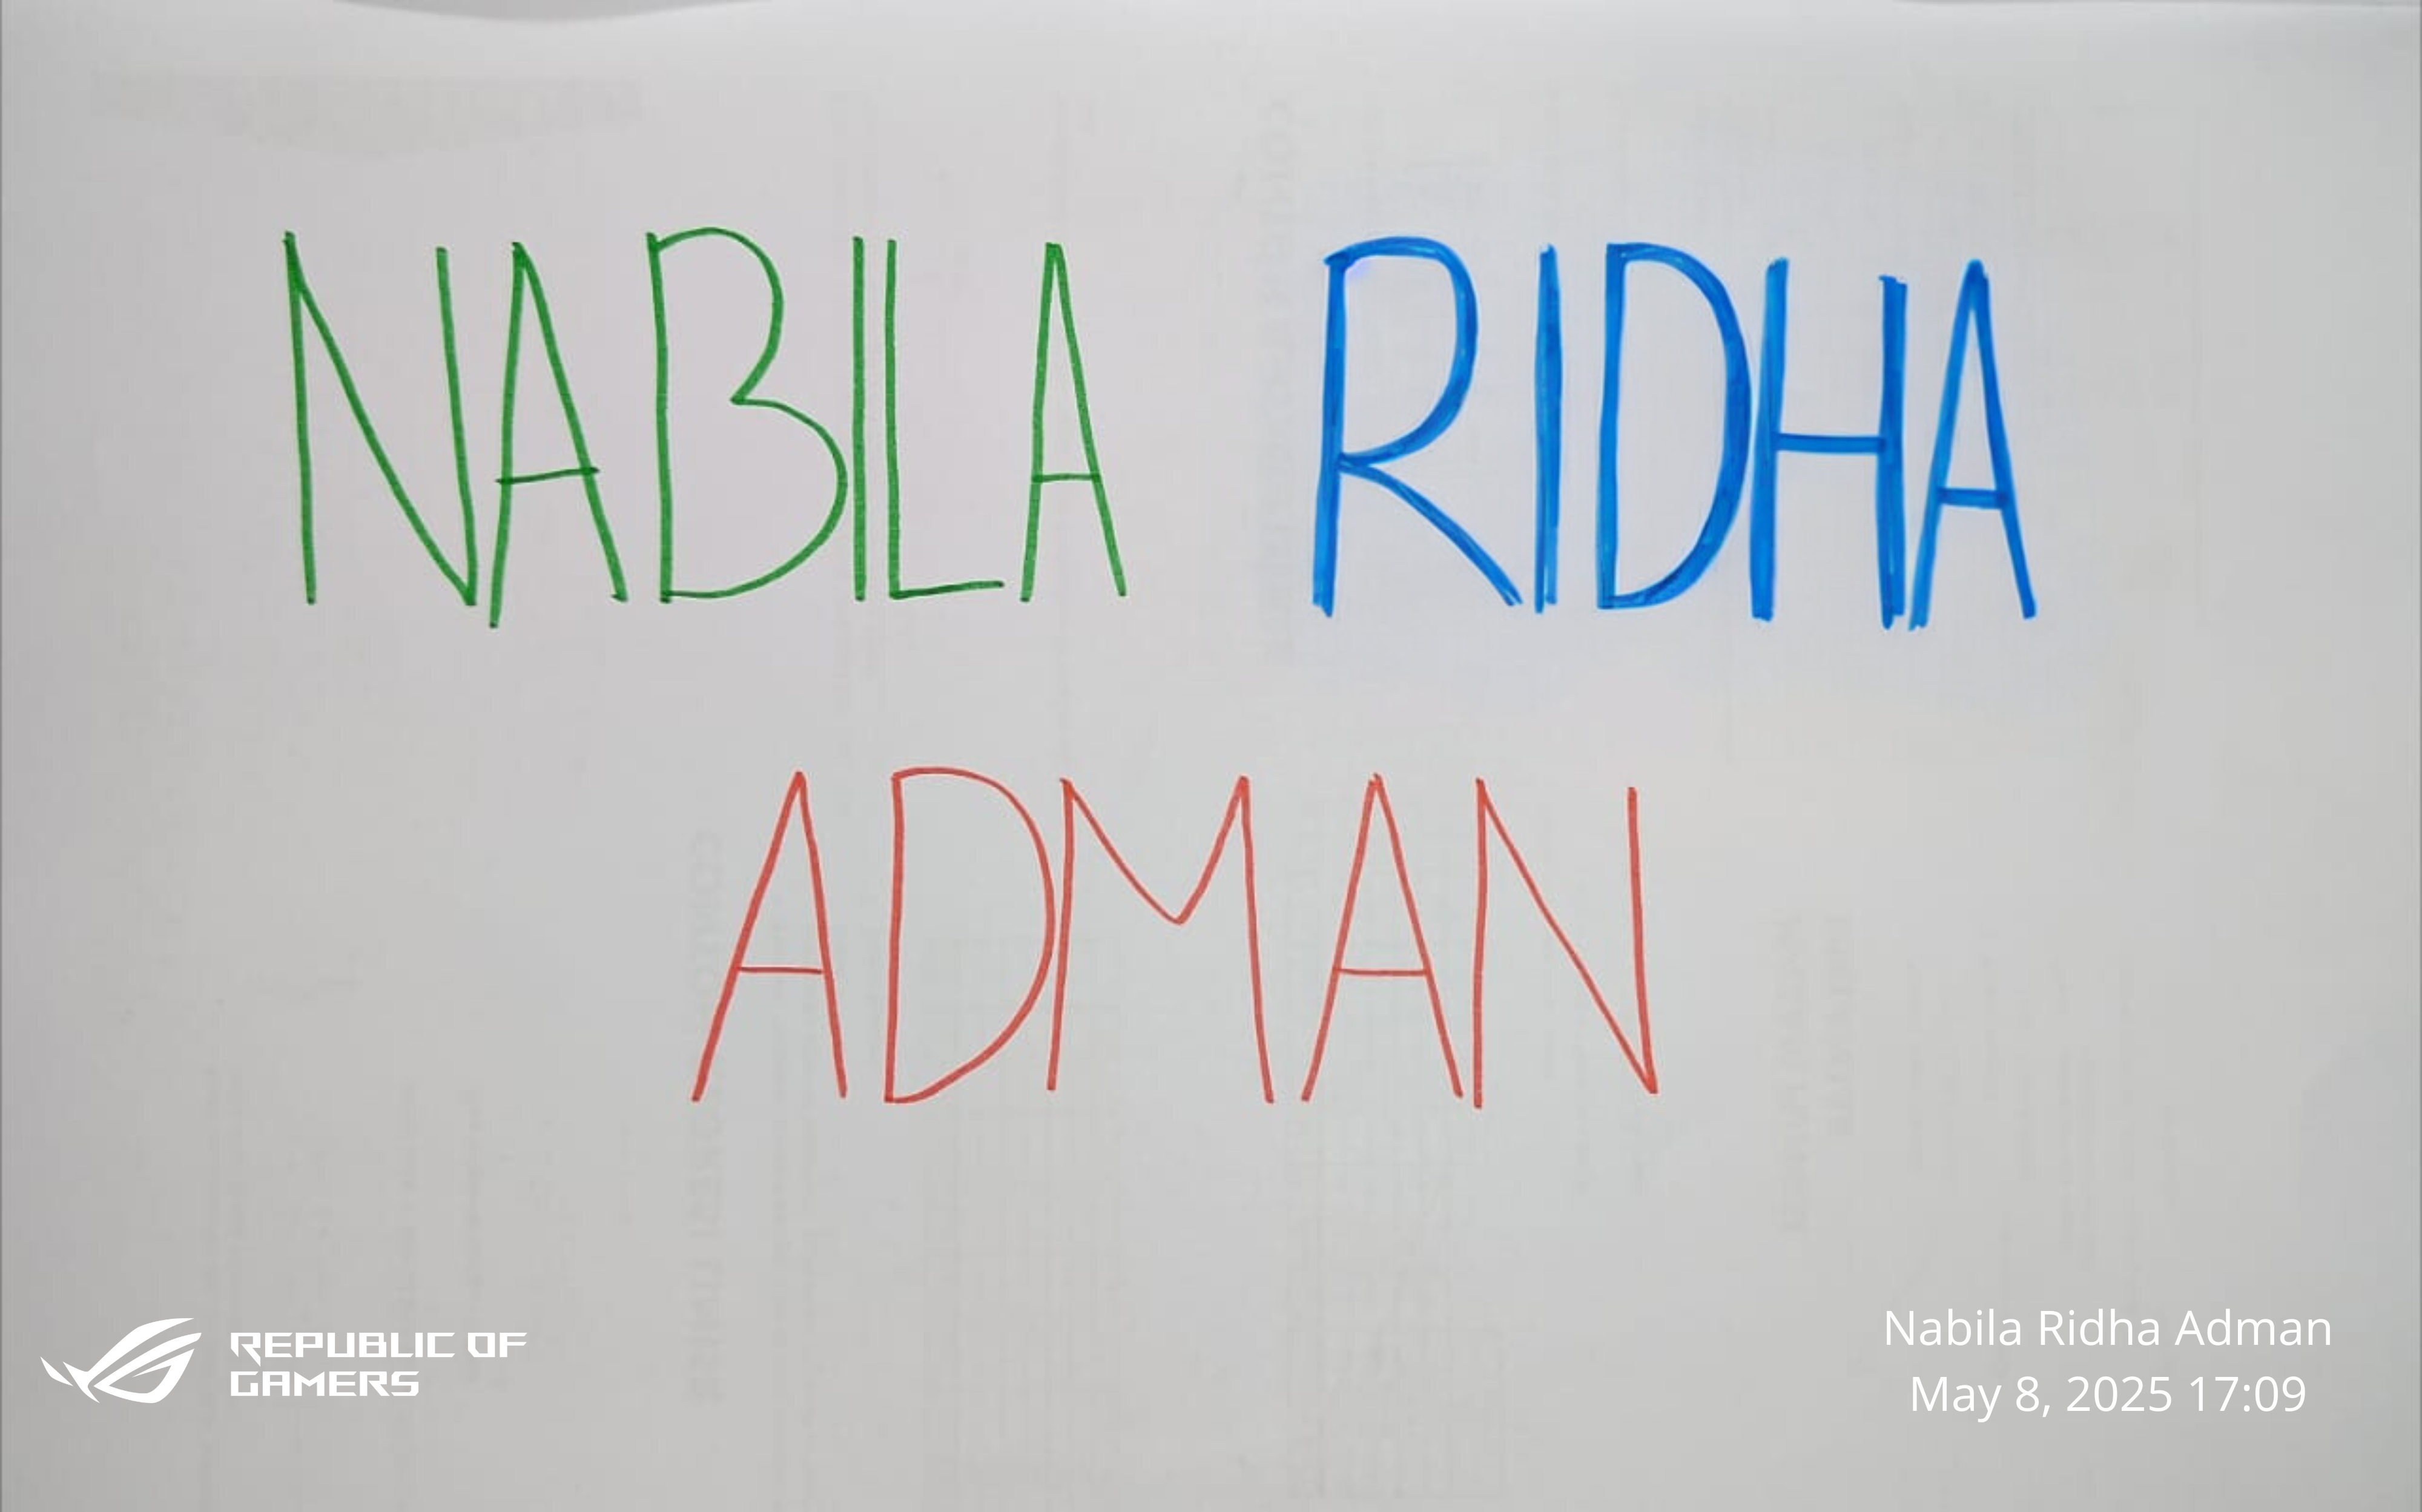 NABILA RIDHA
ADMAN
REPUBLIC OF
GAMERS
Nabila Ridha Adman
May 8, 2025 17:09